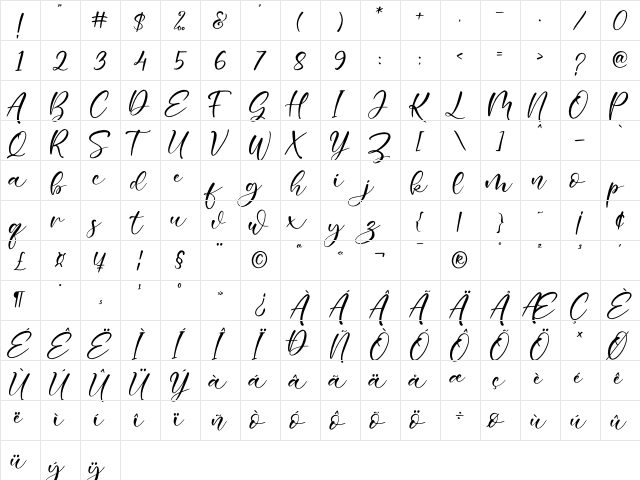 ! " # $ % & ' ( ) * + , - . / 0
1 2 3 4 5 6 7 8 9 : ; < = > ? @
A B C D E F G H I J K L M N O P
Q R S T U V W X Y Z [ \ ] ^ _ `
a b c d e f g h i j k l m n o p
q r s t u v w x y z { | } ~ ¡ ¢
£ ¤ ¥ ¦ § ¨ © ª « ¬ ¯ ®
¶ ¿ À Á Â Ã Ä Å Æ Ç È
É Ê Ë Ì Í Î Ï Ð Ñ Ò Ó Ô Õ Ö × Ø
Ù Ú Û Ü Ý à á â ã ä å æ ç è é ê
ë ì í î ï ñ ò ó ô õ ö ÷ ø ù ú û
ü ý ÿ